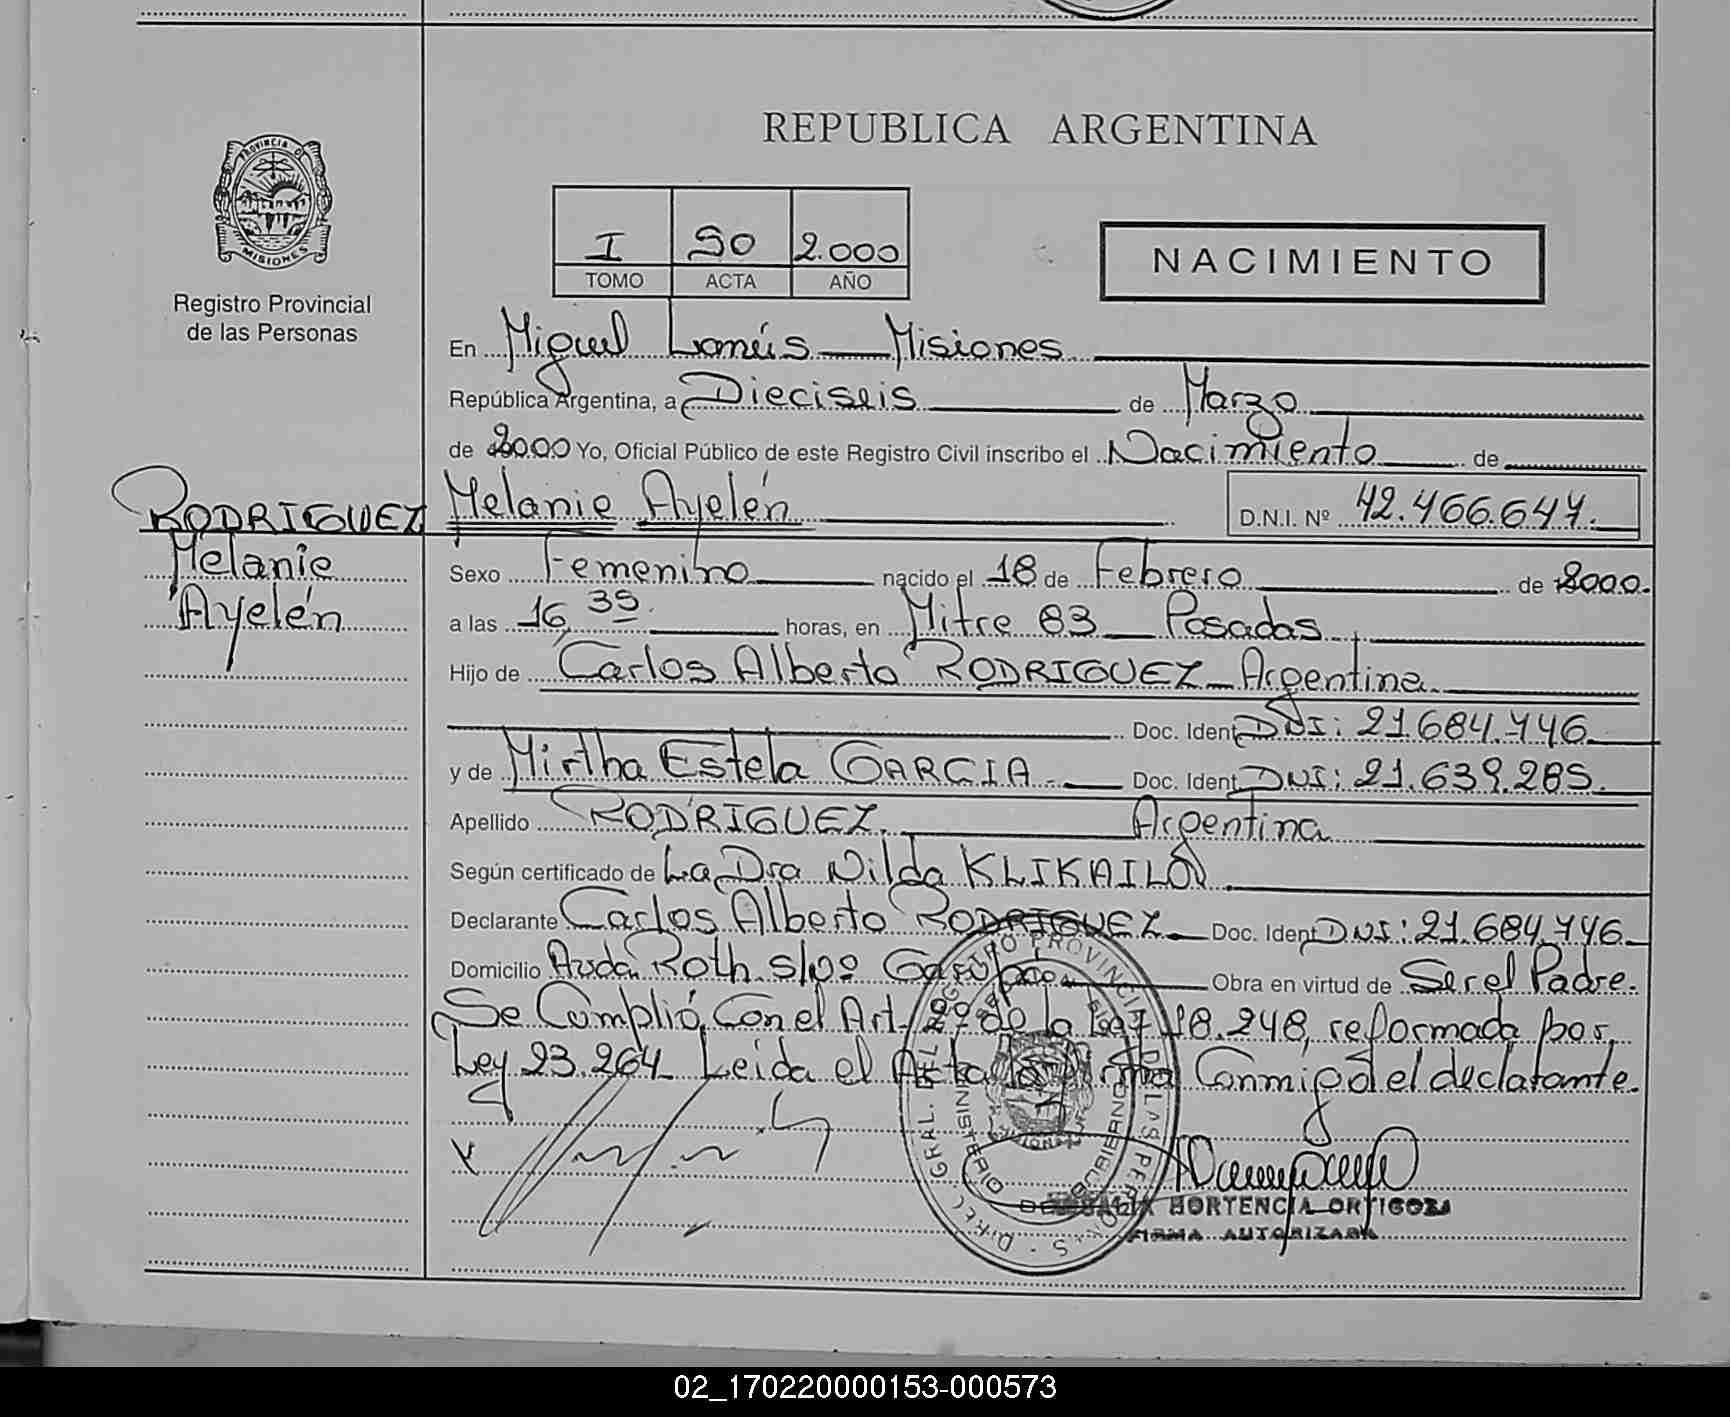 REPUBLICA ARGENTINA
PROVINCIA DE MISIONES
Registro Provincial
de las Personas
I 50 2.000
TOMO ACTA AÑO
NACIMIENTO
En Miguel Lanús — Misiones
República Argentina, a Dieciseis de Marzo
de 2000 Yo, Oficial Público de este Registro Civil inscribo el Nacimiento de
RODRIGUEZ
Melanie
Ayelén
Melanie Ayelén D.N.I. Nº 42.466.647.
Sexo Femenino nacido el 18 de Febrero de 2000.
a las 16,35. horas, en Mitre 83 — Posadas.
Hijo de Carlos Alberto RODRIGUEZ — Argentina.
Doc. Ident DNI: 21.684.746
y de Mirtha Estela GARCIA. Doc. Ident DNI: 21.639.285.
Apellido RODRIGUEZ. Argentina
Según certificado de La Dra Nilda KLIKAILO
Declarante Carlos Alberto RODRIGUEZ Doc. Ident DNI: 21.684.746
Domicilio Avda. Roth s/nº Garupá Obra en virtud de Ser el Padre.
Se Cumplió Con el Art. 2º de la Ley 18.248, reformada por
Ley 23.264 Leida el Acta la Firma Conmigo el declarante.
DIREC. GRAL. DEL REGISTRO PROVINCIAL DE LAS PERSONAS
MINISTERIO DE GOBIERNO
HORTENCIA ORTIGOZA
FIRMA AUTORIZADA
02_170220000153-000573